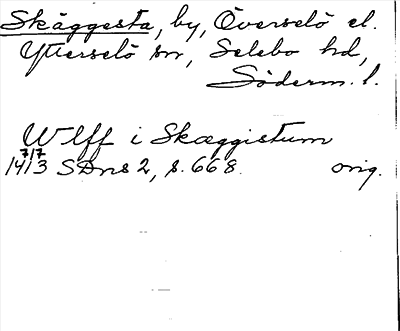 Skäggesta, by, Överselö el.
Ytterselö sn, Selebo hd,
Söderm. l.
Wlff i Skæggistum
7/7
1413 SDns 2, s. 668. orig.